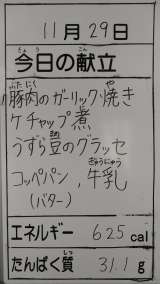 11月29日
今日の献立
豚肉のガーリック焼き
ケチャップ煮
うずら豆のグラッセ
コッペパン、牛乳
(バター)
エネルギー 625 cal
たんぱく質 31.1 g